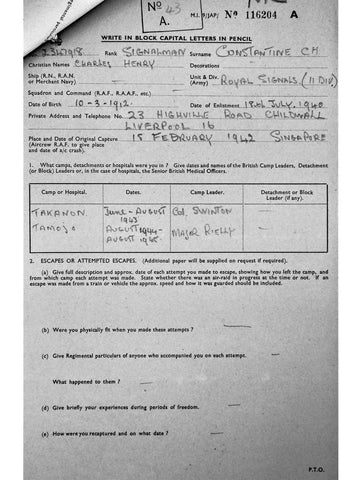 Nº 43
A.
M.I.9/JAP/ Nº 116204 A
WRITE IN BLOCK CAPITAL LETTERS IN PENCIL
2347918 Rank SIGNALMAN Surname CONSTANTINE CH
Christian Names CHARLES HENRY Decorations
Ship (R.N., R.A.N. or Merchant Navy) — Unit & Div. (Army) ROYAL SIGNALS (11 DIV)
Squadron and Command (R.A.F., R.A.A.F., etc.) —
Date of Birth 10-3-1912 Date of Enlistment 18th JULY, 1940
Private Address and Telephone No. 23 HIGHVILLE ROAD CHILDWALL
LIVERPOOL 16
Place and Date of Original Capture 15 FEBRUARY 1942 SINGAPORE
(Aircrew R.A.F. to give place
and date of a/c crash).
1. What camps, detachments or hospitals were you in? Give dates and names of the British Camp Leaders, Detachment
(or Block) Leaders or, in the case of hospitals, the Senior British Medical Officers.
Camp or Hospital. Dates. Camp Leader. Detachment or Block Leader (if any).
TAKANON June - AUGUST 1943 Col. SWINTON —
TAMOJO AUGUST 1944 - AUGUST 1945 MAJOR RIELLY —
2. ESCAPES OR ATTEMPTED ESCAPES. (Additional paper will be supplied on request if required).
(a) Give full description and approx. date of each attempt you made to escape, showing how you left the camp, and
from which camp each attempt was made. State whether there was an air-raid in progress at the time or not. If an
escape was made from a train or vehicle the approx. speed and how it was guarded should be included.
—
(b) Were you physically fit when you made these attempts? —
(c) Give Regimental particulars of anyone who accompanied you on each attempt. —
What happened to them? —
(d) Give briefly your experiences during periods of freedom. —
(e) How were you recaptured and on what date? —
P.T.O.